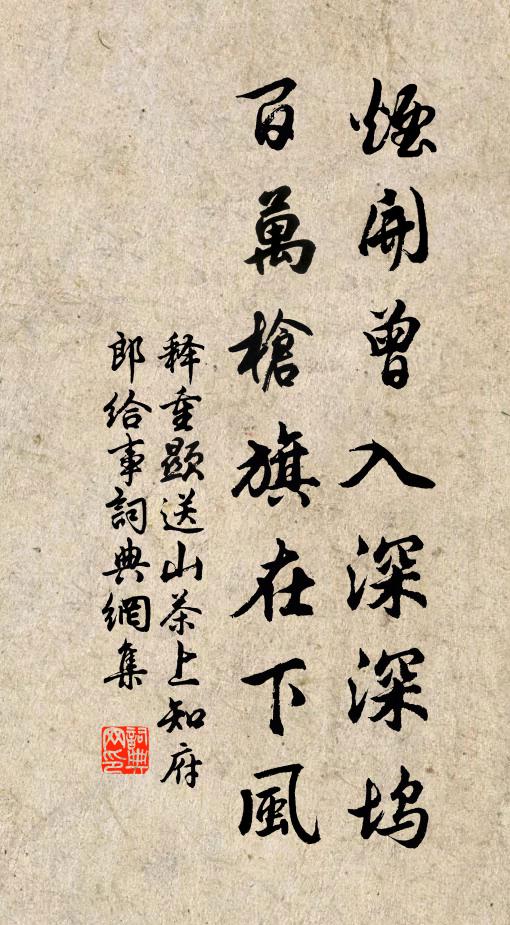 煙開曾入深深塢
百萬槍旗在下風
释重顯送山茶上知府
郎给事詞典網集
詞典網印